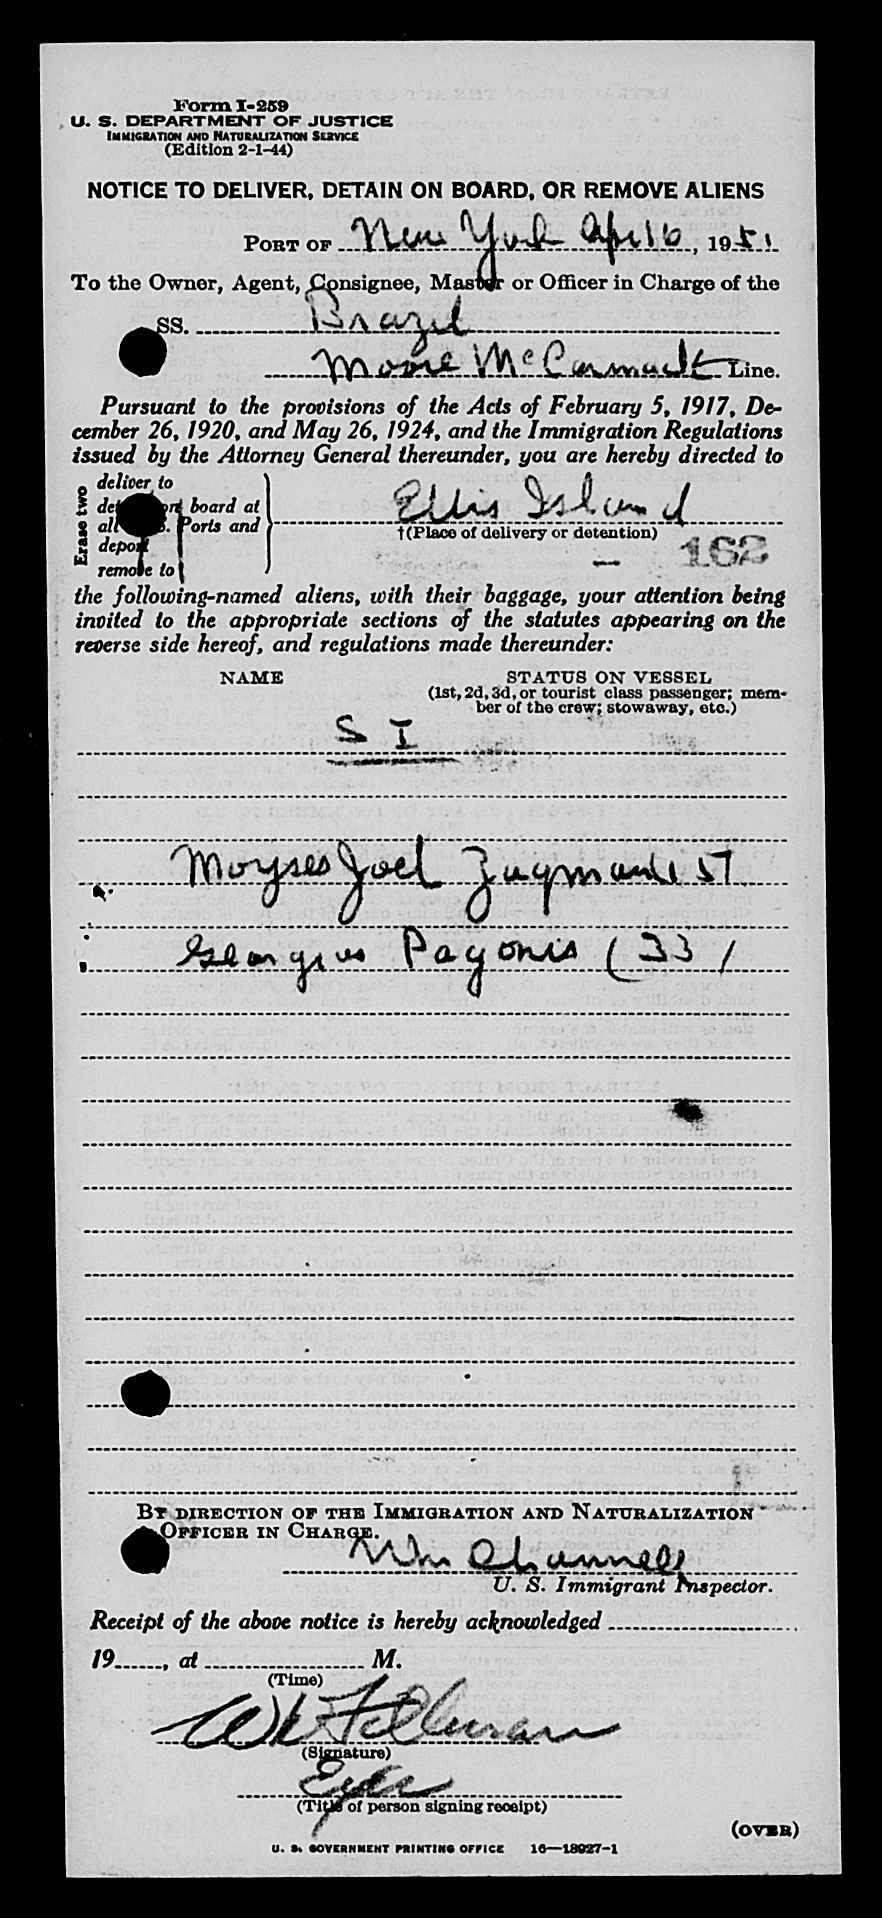 Form I-259
U. S. DEPARTMENT OF JUSTICE
IMMIGRATION AND NATURALIZATION SERVICE
(Edition 2-1-44)
NOTICE TO DELIVER, DETAIN ON BOARD, OR REMOVE ALIENS
PORT OF New York April 6, 1951
To the Owner, Agent, Consignee, Master or Officer in Charge of the
SS. Brazil
Moore McCormack Line.
Pursuant to the provisions of the Acts of February 5, 1917, De-
cember 26, 1920, and May 26, 1924, and the Immigration Regulations
issued by the Attorney General thereunder, you are hereby directed to
Erase two
deliver to
on board at
all Ports and
deport
remove to
Ellis Island
†(Place of delivery or detention)
162
the following-named aliens, with their baggage, your attention being
invited to the appropriate sections of the statutes appearing on the
reverse side hereof, and regulations made thereunder:
NAME STATUS ON VESSEL
(1st, 2d, 3d, or tourist class passenger; mem-
ber of the crew; stowaway, etc.)
S I
Moyses Joel 57
Georgios Pagonis (33)
BY DIRECTION OF THE IMMIGRATION AND NATURALIZATION
OFFICER IN CHARGE.
Wm Channell
U. S. Immigrant Inspector.
Receipt of the above notice is hereby acknowledged
19 , at M.
(Time)
(Signature)
(Title of person signing receipt)
(OVER)
U. S. GOVERNMENT PRINTING OFFICE 16—18927-1